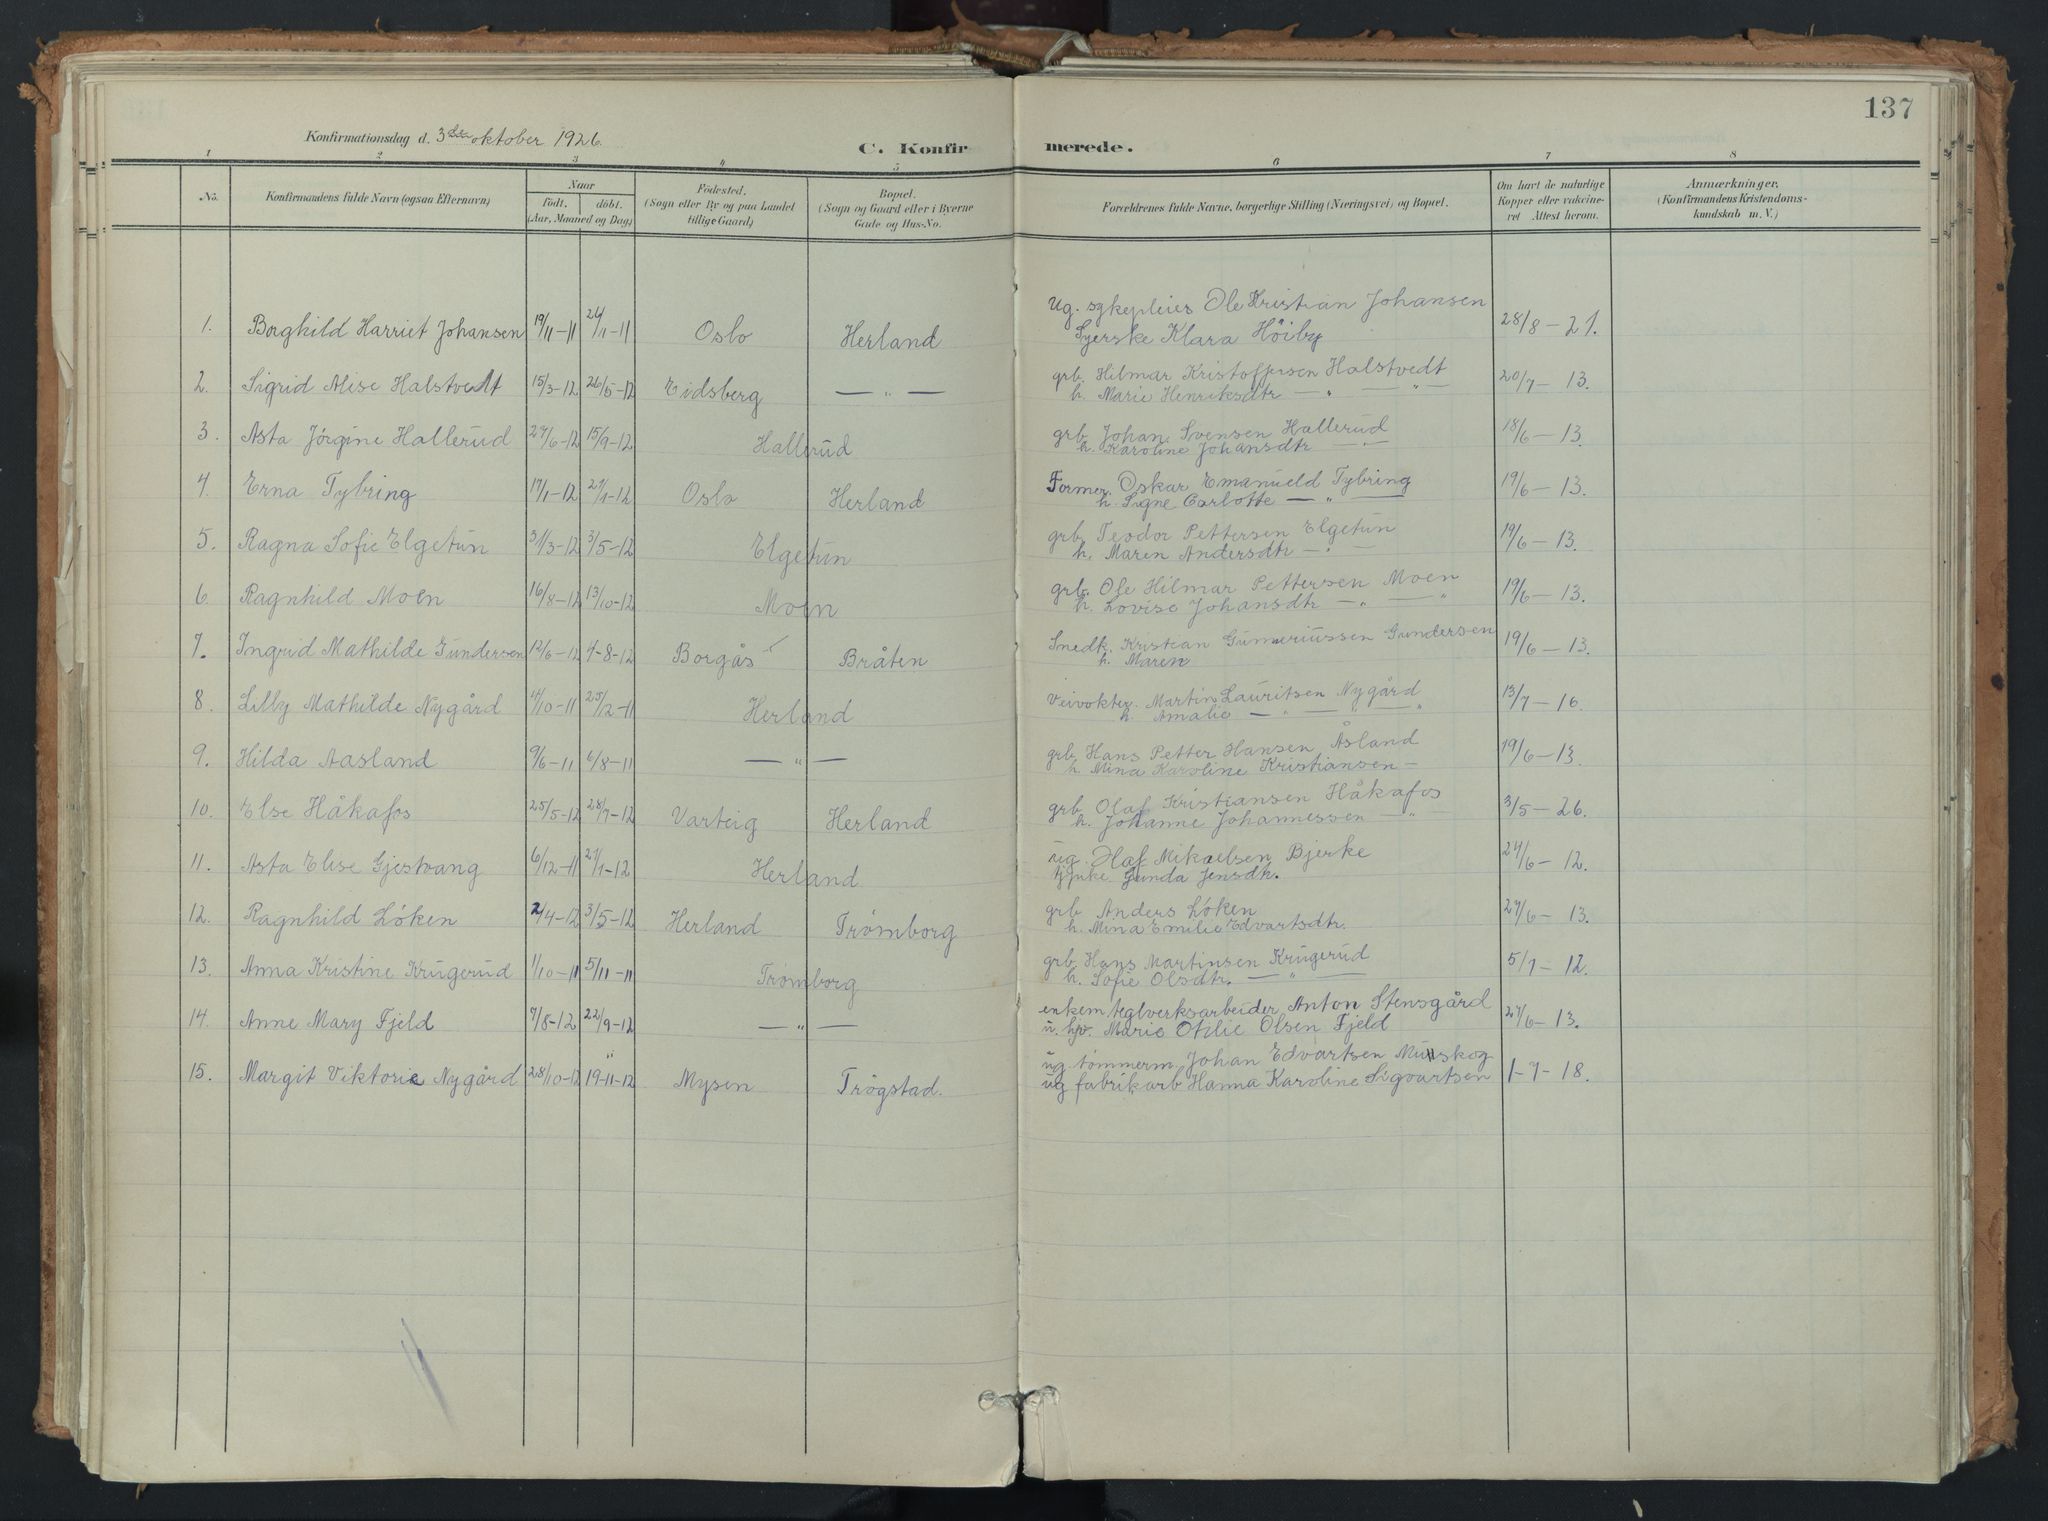 137
Konfirmationsdag d. 3den oktober 1926.
C. Konfirmerede.
1 2 3 4 5 6 7 8
No. Konfirmandens fulde Navn (ogsaa Efternavn) Naar Födested. Bopæl. Forældrenes fulde Navne, borgerlige Stilling (Næringsvei) og Bopæl. Om havt de naturlige Anmærkninger.
födt. döbt. (Sogn eller By og paa Landet (Sogn og Gaard eller i Byerne Kopper eller vakcine- (Konfirmandens Kristendoms-
(Aar, Maaned og Dag) tillige Gaard) Gade og Hus-No. ret Attest herom. kundskab m. V.)
ug. sykepleier Ole Kristian Johansen
1. Borghild Harriet Johansen 19/11-11 26/1-11 Oslo Herland Syerske Klara Höiby 28/8-21.
2. Sigrid Alise Halstvedt 15/3-12 26/5-12 Eidsberg — " — grb. Hilmar Kristoffersen Halstvedt 20/7-13.
h. Marie Henriksdtr — " — " —
3. Asta Jörgine Hallerud 27/6-12 15/9-12 Hallerud grb. Johan Svensen Hallerud 18/6-13.
h. Karoline Johansdtr — " —
4. Erna Tybring 17/1-12 27/1-12 Oslo Herland Former. Oskar Emanueld Tybring 19/6-13.
h. Signe Carlotte — " —
5. Ragna Sofie Elgetun 31/3-12 3/5-12 Elgetun grb. Teodor Pettersen Elgetun 19/6-13.
h. Maren Andersdtr — " —
6. Ragnhild Moen 16/8-12 13/10-12 Moen grb. Ole Hilmar Pettersen Moen 19/6-13.
h. Lovise Johansdtr — " — "
7. Ingrid Mathilde Gundersen 12/6-12 4-8-12 Borgås Bråten Snedk. Kristian Gumeriussen Gundersen 19/6-13.
h. Maren
8. Lilly Mathilde Nygård 4/10-11 25/2-11 Herland Veivokter. Martin Lauritsen Nygård 13/7-16.
h. Amalie — " — " — "
9. Hilda Aasland 9/6-11 6/8-11 — " — grb. Hans Petter Hansen Åsland 19/6-13.
h. Mina Karoline Kristiansen —
10. Else Håkafos 25/5-12 28/7-12 Varteig Herland grb. Olaf Kristiansen Håkafos 3/5-26.
h. Johanne Johannessen — " —
11. Asta Elise Gjestvang 6/12-11 27/1-12 Herland ug. Olaf Mikaelsen Bjerke 24/6-12.
tjpike. Gunda Jensdtr.
12. Ragnhild Löken 2/4-12 3/5-12 Herland Trømborg grb. Anders Löken 27/6-13.
h. Mina Emilie Edvartsdtr.
13. Anna Kristine Krugerud 1/10-11 5/11-11 Trømborg grb. Hans Martinsen Krugerud 5/7-12.
h. Sofie Olsdtr. — " —
14. Anne Mary Fjeld 7/8-12 22/9-12 — " — enkem. teglverksarbeider Anton Stensgård 27/6-13.
u. hp. Marie Otilie Olsen Fjeld
ug. tömmerm. Johan Edvartsen
15. Margit Viktorie Nygård 28/10-12 19-11-12 Mysen Trögstad. ug fabrikarb Hanna Karoline Sigvartsen 1-7-18.